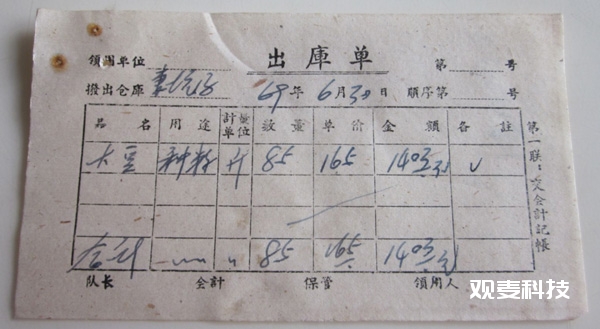 出庫单
領用单位 第 号
撥出仓庫 69年6月30日 順序第 号
品名 用途 計量单位 数量 单价 金額 备註
大豆 种籽 斤 85 165 1403 ✓
合计 〃 85 165 1403
队长 会計 保管 領用人
第一联：交会計記帳
观麦科技